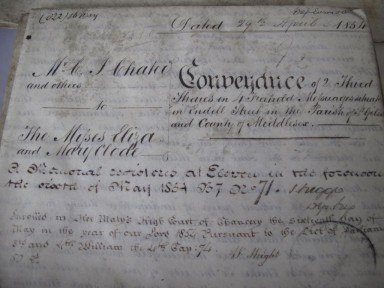 Dated 29th April 1854
and others
to
The Misses Eliza
and Mary Clode
Conveyance of 2 Third
Shares in 4 Freehold Messuages situate
in Endell Street in the Parish of St Giles
and County of Middlesex.
A Memorial registered at Eleven in the forenoon
the second of May 1854 B 7 No 71.
Inrolled in Her Majty's High Court of Chancery the sixteenth day of
May in the year of our Lord 1854 Pursuant to the Act of Parliament
3rd and 4th William the 4th Cap 74